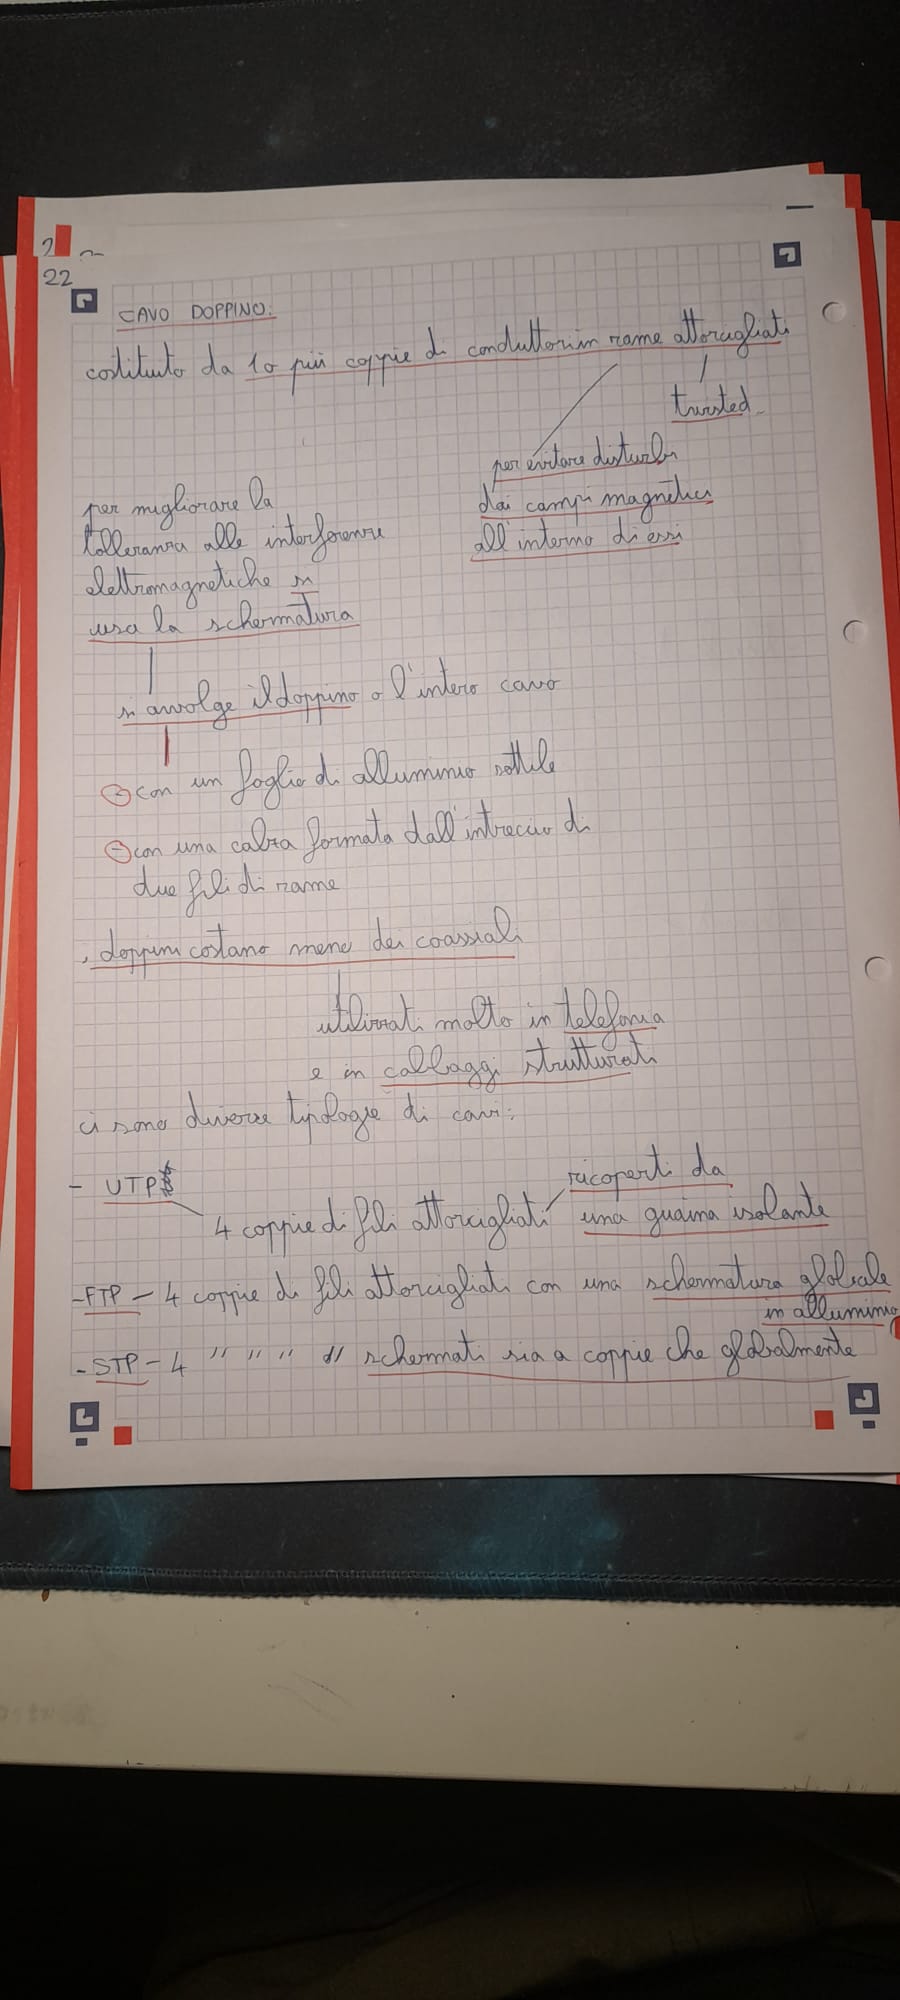 22
CAVO DOPPINO:
costituito da 1 o più coppie di conduttori in rame attorcigliati
twisted
per evitare disturbi
dai campi magnetici
all'interno di essi
per migliorare la
tolleranza alle interferenze
elettromagnetiche si
usa la schermatura
si avvolge il doppino o l'intero cavo
con un foglio di alluminio sottile
con una calza formata dall'intreccio di
due fili di rame
i doppini costano meno dei coassiali
utilizzati molto in telefonia
e in cablaggi strutturati
ci sono diverse tipologie di cavi:
- UTP
ricoperti da
4 coppie di fili attorcigliati una guaina isolante
- FTP - 4 coppie di fili attorcigliati con una schermatura globale
in alluminio
- STP - 4 " " " " schermati sia a coppie che globalmente